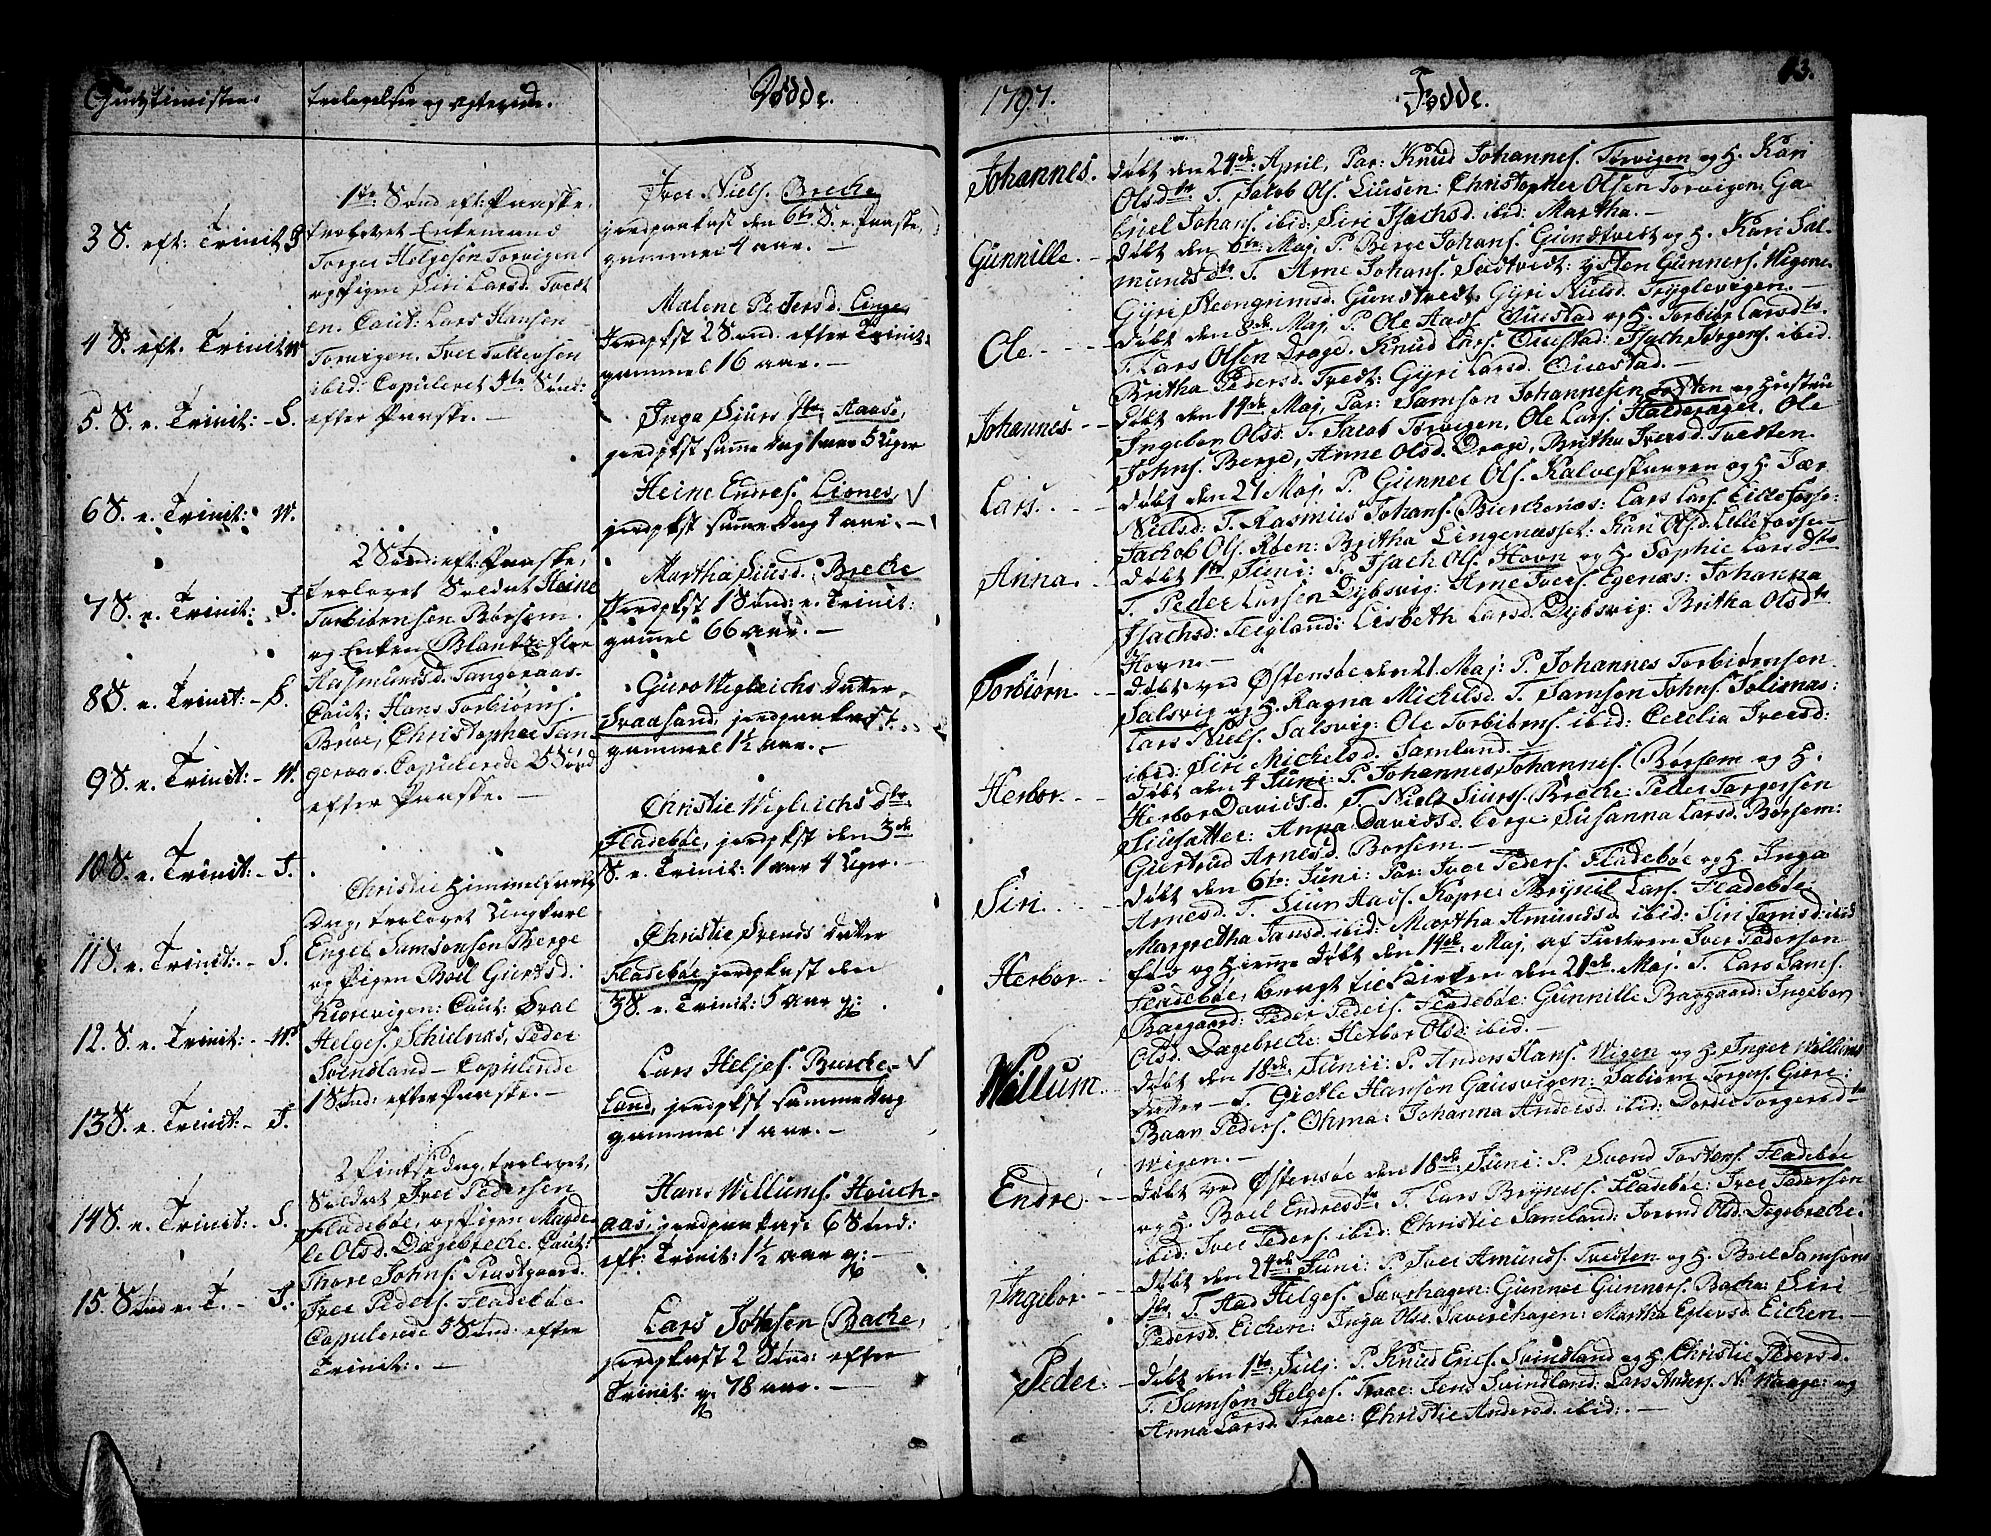 Gudstienisten.
3 S. eft: Trinit
4 S. eft. Trinit
5 S. e. Trinit: - S.
6 S. e. Trinit: W.
7 S. e. Trinit: S.
8 S. e. Trinit: - S.
9 S. e. Trinit: - W.
10 S. e. Trinit: - S.
11 S. e. Trinit: - S.
12. S. e. Trinit: - W.
13 S. e. Trinit: - S.
14 S. e. Trinit: - S.
15. Sønd e. T. - S.
Trolovelser og ægteviede.
1te Sønd eft: Paaske,
trolovet Enkemand
Torger Helgesen Torvigen
og Pigen Siri Larsd. Tvedt
en. Caut: Lars Hansen
Torvigen, Iver
ibid: Copuleret Sønd:
efter Paaske. -
2 Sønd: eft: Paaske,
trolovet Soldat Heine
Torbiörnsen Börsem.
og Enken
Rasmundsd. Tangeraas.
Caut: Hans Torbiörns.
Brue, Christopher Tan-
geraas. Copulerede 2 Sønd
efter Paaske. -
Christi Himmelfarts
Dag, trolovet Ungkarl
Engel Samsonsen Berge
og Pigen Boel Giertsd.
Kiærevigen: Caut:
Helges. Schielnæs, Peder
Svindland - Copulerede
1 Sønd: efter Paaske. -
2 Pintsedag, trolovet,
Soldat Iver Pedersen
Fladebøe, og Pigen Magde-
le Olsd. Dagebreche. Caut:
Thore Johns. Præstgaard.
Iver Peders. Fladebøe.
Copulerede 5 Sønd: efter
Trinit: -
Dödde.
Iver Niels. Breche
jordpaakast den 6te S. e. Paaske,
gammel 4 aar. -
Malene Pedersd. Linge,
Jordpkst 2 Sønd. efter Trinit:
gammel 16 aar. -
Inga Siurs Dtr. Aaase,
jordpkst samme Dag 1 aar 5 Uger
Heine Endres. Liones,
jordpkst samme Dag 1 aar. -
Martha Siursd. Breche
Jordpkst 1 Sønd: e. Trinit:
gamel 66 aar. -
Guro Wigleichs Datter,
Svaasand, jordpaakast.
gammel 1½ aar. -
Christie Wigleichs Dtr
Fladebøe, jordpkst den 3de
S. e. Trinit: 1 aar 4 Uger. -
Christie Svends Datter
Fladebøe jordpkast den
3 S. e. Trinit: 5 aar g:
Lars Heljes. Busche-
land, jordpkst samme Dag
gammel 1 aar. -
Hans Willums. Houch-
aas, jordpaakast 6 Sønd:
eft: Trinit: 1½ aar g: -
Lars Johnsen Bache,
jordpkast 2 Sønd: efter
Trinit: g. 78 aar. -
1797. Fødde. 13.
Johannes. Döbt den 24de April, Par: Knud Johannes. Torvigen og H. Kari
Olsdtr T. Jacob Ols. Liusen: Christopher Olsen Torvigen: Ga-
briel Johans. ibid: Siri Isachsd. ibid: Martha. -
Gunnille. - Döbt den 6te Maj, P. Berge Johans. Gundtvedt og H. Kari Sal-
mundsdtr T. Arne Johans. Sædtvedt: Østen Gunners. Wigene
Gyri Steengrimsd. Gundtvedt. Gyri Nielsd. Tryglevigen. -
Ole. - Döbt den Maj, P. Ole Aads. Ouestad og H. Torbiør Larsdtr.
T. Lars Olsen Drage. Knud Lars. Ouestad: Isach Torgers. ibid.
Britha Pedersd. Tvedt: Gyri Larsd. Ouestad. -
Johannes - Döbt den 14de Maj, Par: Samson Johannesen og Hustru
Ingebor Olsd. T. Jacob Torvigen, Ole Lars. Haldorager, Ole
Johns. Berge, Anne Olsd. Drage, Britha Iversd. Tvedten.
Lars. - Döbt den 21 Maj, P. Gunner Ols. Kalveskuuren og H.
Nielsd: T. Rasmus Johans. Buschenæs: Lars Lars. Lille fosse-
Jachob Ols. Røen: Britha Lingenæsset: Kari Olsd. Lillefosse -
Anna - Döbt 1te Juni: P. Isach Ols. Hovn og H. Sophie Larsdtr
T. Peder Larsen Dybsvig: Arne Ivers. Egenæs: Johanna
Isachsd: Teigland: Lisbeth Larsd. Dybsvig: Britha Olsdtr
Hovn. -
Torbiörn - Döbt ved Östensöe den 21. Maj: P. Johannes Torbiörnsen
Salsvig og H. Ragna Michelsd. T. Samson Johns. Solesnæs:
Lars Niels. Salsvig: Ole Torbiörns. ibid: Cecelia Iversd:
ibid: Siri Michelsd. Samland. -
Herbor. - Döbt den 4 Juni: P. Johannes Johannes. Börsem og H.
Herbor Davidsd. T. Niels Siurs. Breche: Peder Torgersen
Siusætter: Anna Davidsd. Susanna Larsd. Börsem:
Giertrud Arnesd. Borsem. -
Siri. - Döbt den 6te Juni: Par: Iver Peders. Fladebøe og H. Inga
Arnesd. T. Siur Aads. Kopre: Brynil Lars. Fladebøe.
Margretha Jansd. ibid: Martha Amundsd. ibid: Siri Tormsd: ibid
Herbor - föd og hiemme Döbt den 14de Maj af Faderen Iver Pedersen
Fladebøe, bragt til Kirken den 21de Maj T. Lars Sams.
Baggaard: Peder Peders. Fladebøe: Gunnille Baggaard: Ingebor
Olsd. Dagebreche: Herbor Olsd: ibid. -
Willum. - Döbt den 18de Junii: P. Anders Hans. Wigen og H. Inger Willums
Datter - T. Giertle Hansen Gausvigen: Saliørn Torgers. Giere:
Baar Peders. Ohma: Johanna Andersd. ibid: Dordie Torgersdtr
Wigen. -
Endre. - Döbt ved Östensöe den 18de Juni: P. Svend Tostens. Fladebøe
og H. Boel Endresdtr. T. Lars Brynels. Fladebøe: Iver Pedersen
ibid: Iver Peders. ibid: Christie Samland: Torend Olsd. Dagebreche.
Ingebor. - Döbt den 24de Juni: P. Iver Amunds. Tvedten og H. Boel Samsons
Dtr. T. Aad Helges. Sævrhagen: Gunner Gunners. Bache: Siri
Pedersd. Eichen: Inga Olsd. Saverehagen: Martha Eylevsd. Eichen. -
Peder. - Döbt den 1te Julj: P. Knud Erics. Svindland og H. Christie Pedersd.
T. Samson Helges. Traae: Jens Svindland: Lars Anders. N: Waage: og
Anna Larsd. Traae: Christie Andersd. ibid: -